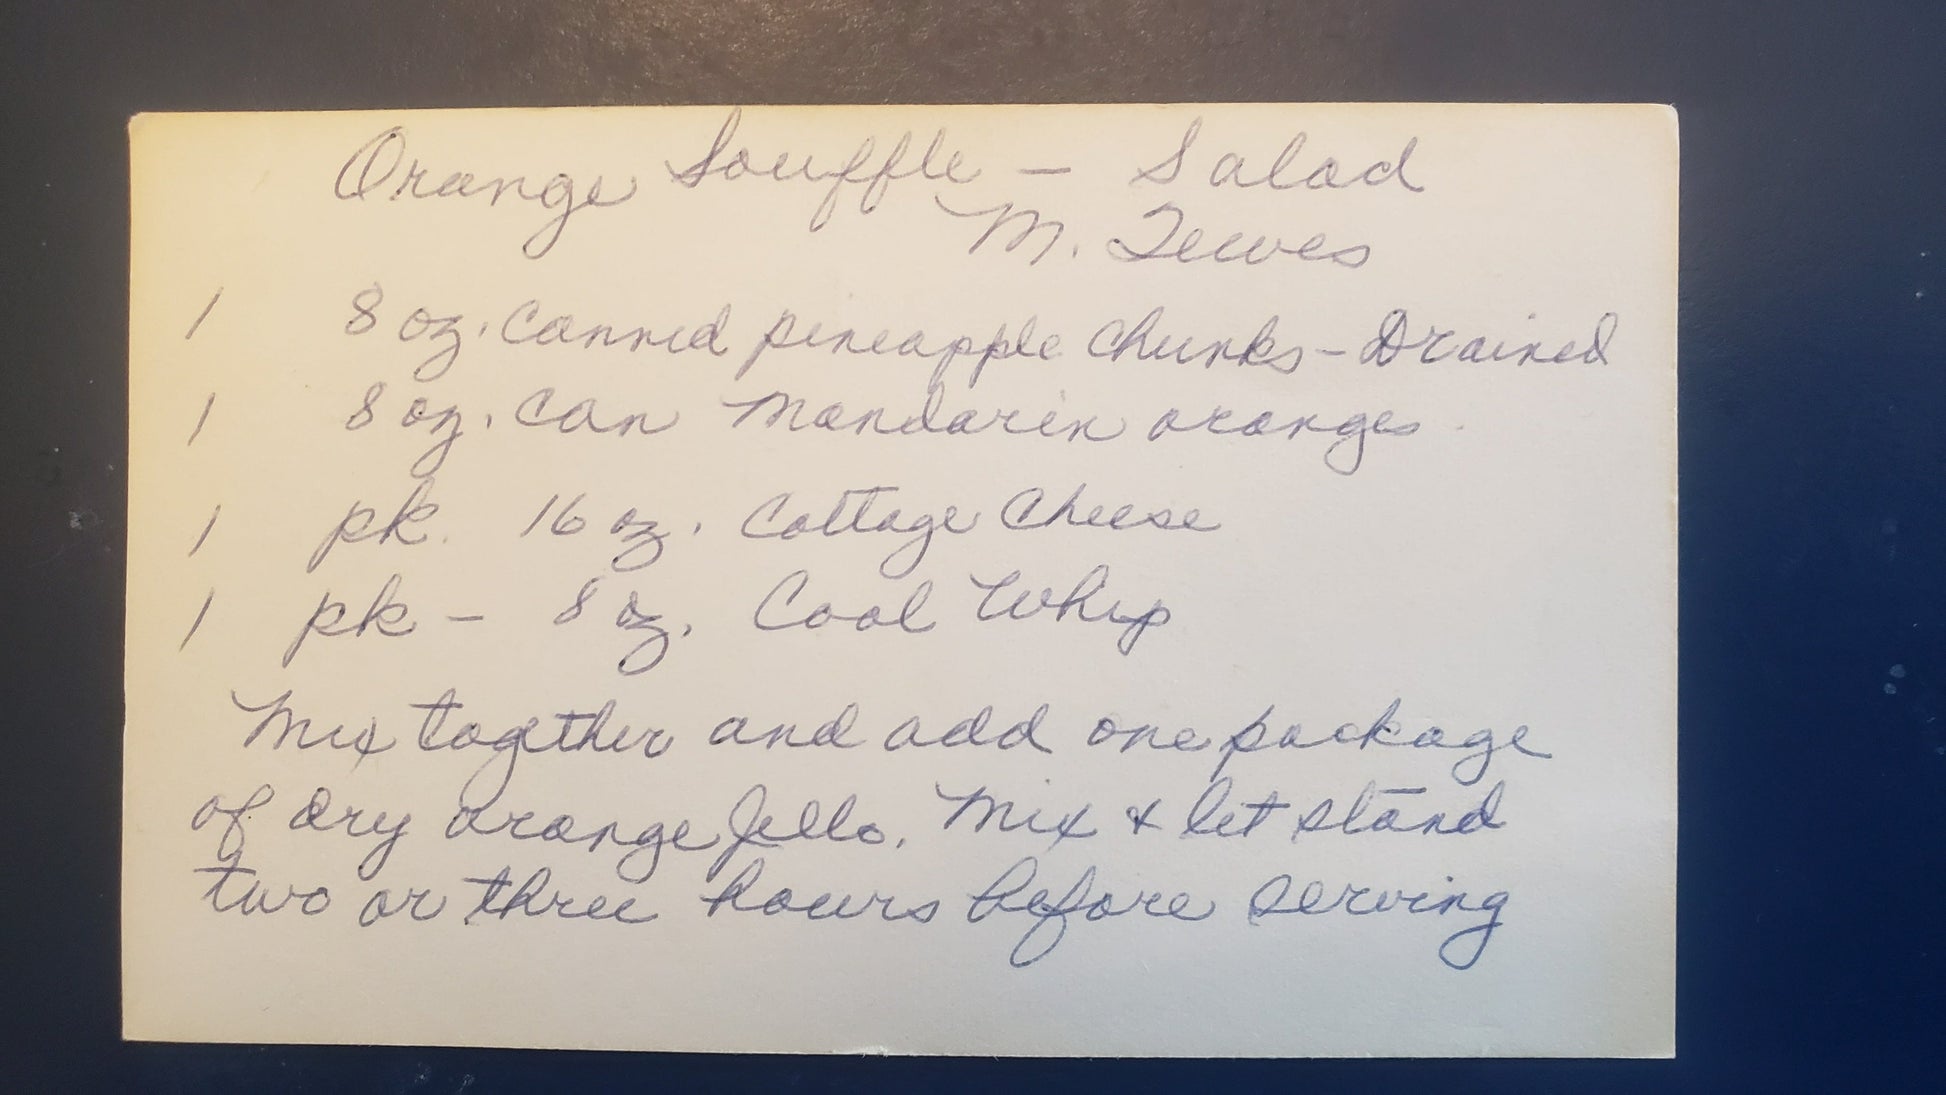 Orange Souffle - Salad
M. Tewes
1 8 oz. Canned pineapple Chunks - Drained
1 8 oz. Can Mandarin oranges
1 pk. 16 oz. Cottage Cheese
1 pk - 8 oz. Cool Whip
Mix together and add one package
of dry orange Jello. Mix & let stand
two or three hours before serving